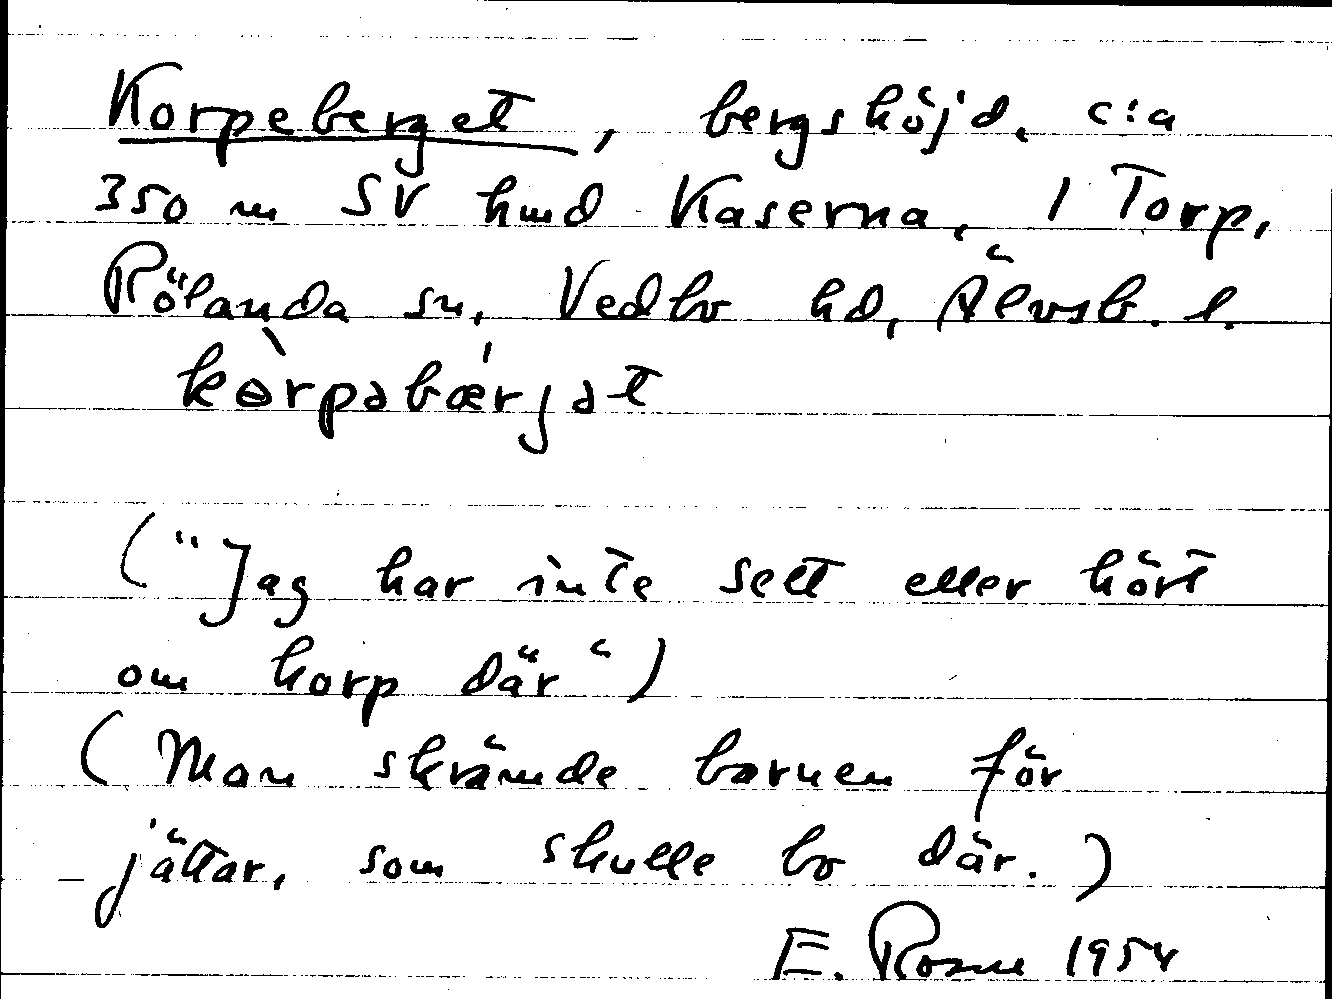 Korpeberget, bergshöjd, c:a
350 m SV hmd Kaserna, 1 Torp,
Rölanda sn, Vedbo hd, Älvsb. l.
kɵ̀rpəbær̍jət
("Jag har inte sett eller hört
om korp där")
(Man skrämde barnen för
jättar, som skulle bo där.)
E. Rosne 1954